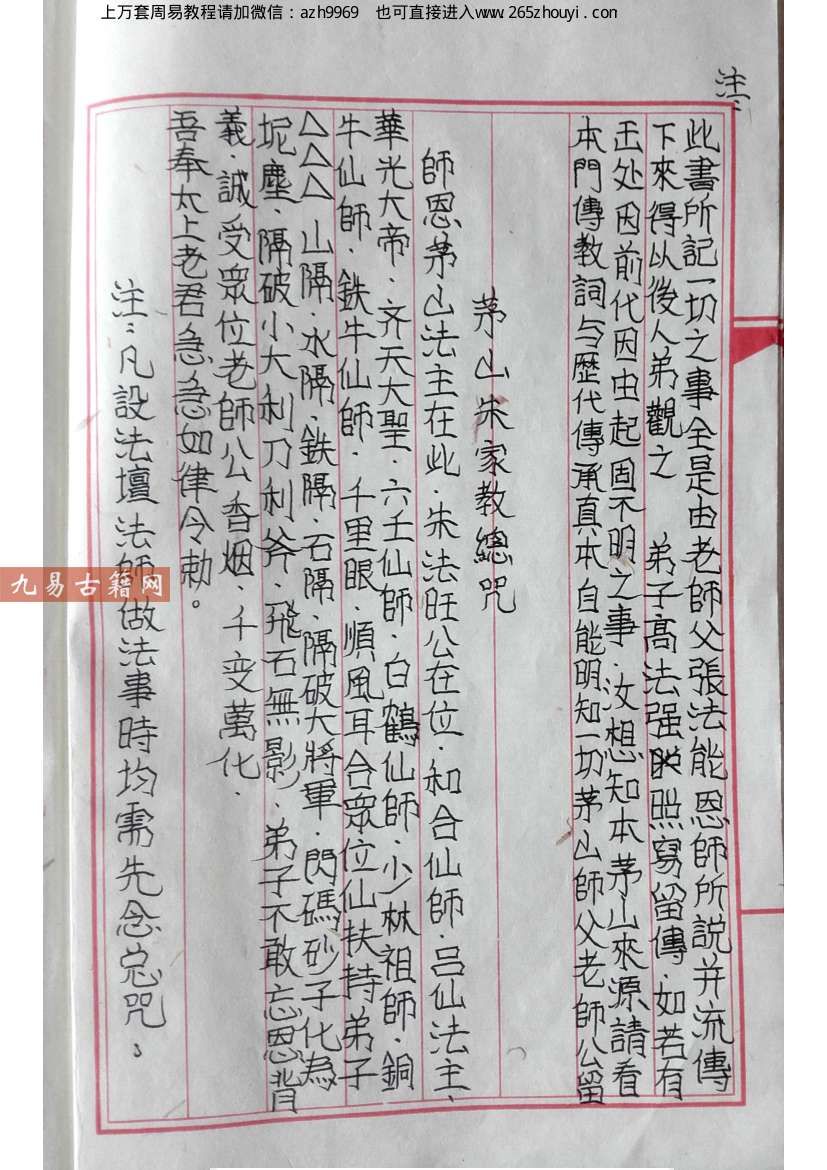 上万套周易教程请加微信：azh9969　也可直接进入www.265zhouyi.com
注：
此書所記一切之事全是由老師父張法能恩師所説并流傳
下來得以後人弟觀之　弟子高法强照寫留傳．如若有
玉处因前代因由起固不明之事．汝想知本茅山來源請看
本門傳教詞与歷代傳承真本自能明知一切茅山師父老師公留
茅山朱家教總咒
師恩茅山法主在此．朱法旺公在位．和合仙師．吕仙法主、
華光大帝．齐天大聖．六壬仙師．白鶴仙師．少林祖師．銅
牛仙師．鉄牛仙師．千里眼．順風耳合眾位仙扶持．弟子
△△△　山隔．水隔．鉄隔．石隔．隔破大將軍．閃碼砂子化為
坭塵．隔破小大利刀利斧．飛石無影．弟子不敢忘恩背
義．誠受眾位老師公香烟．千变萬化．
吾奉太上老君急急如律令勅。
注：凡設法壇法師做法事時均需先念总咒。
九易古籍网